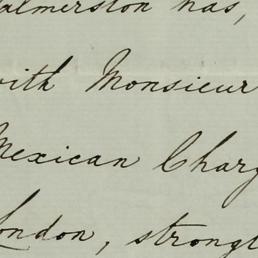 almerston has,
with Monsieur
Mexican Charg
London, strongl